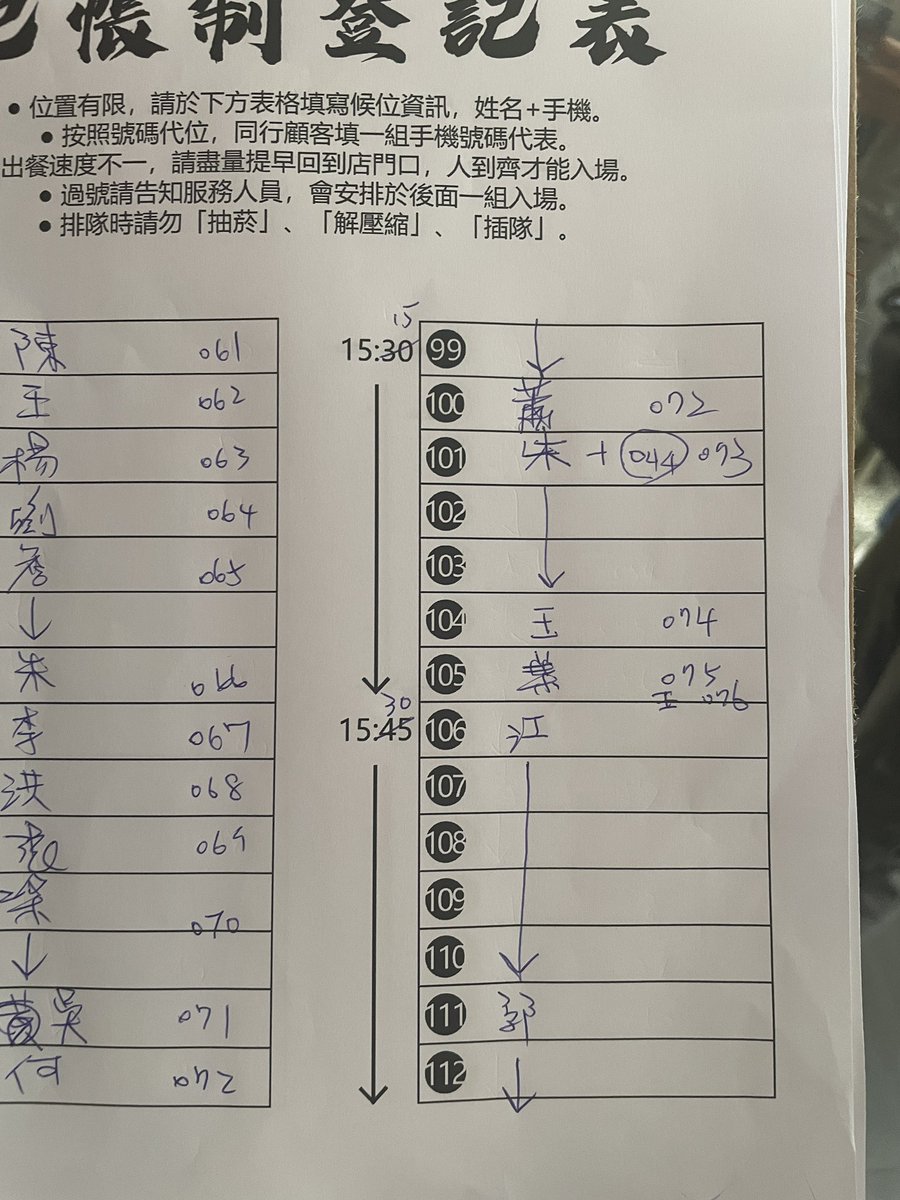 帳制登記表
● 位置有限，請於下方表格填寫候位資訊，姓名+手機。
● 按照號碼代位，同行顧客填一組手機號碼代表。
出餐速度不一，請盡量提早回到店門口，人到齊才能入場。
● 過號請告知服務人員，會安排於後面一組入場。
● 排隊時請勿「抽菸」、「解壓縮」、「插隊」。
陳 061
王 062
楊 063
劉 064
詹 065
↓
朱 066
李 067
洪 068
069
梁 070
↓
黃吳 071
何 072
15
15:30 99 ↓
100 蕭 072
101 朱 + 044 073
102
103
104 王 074
105 葉 075
王 076
30
15:45 106 江
107
108
109
110
111 郭
112 ↓